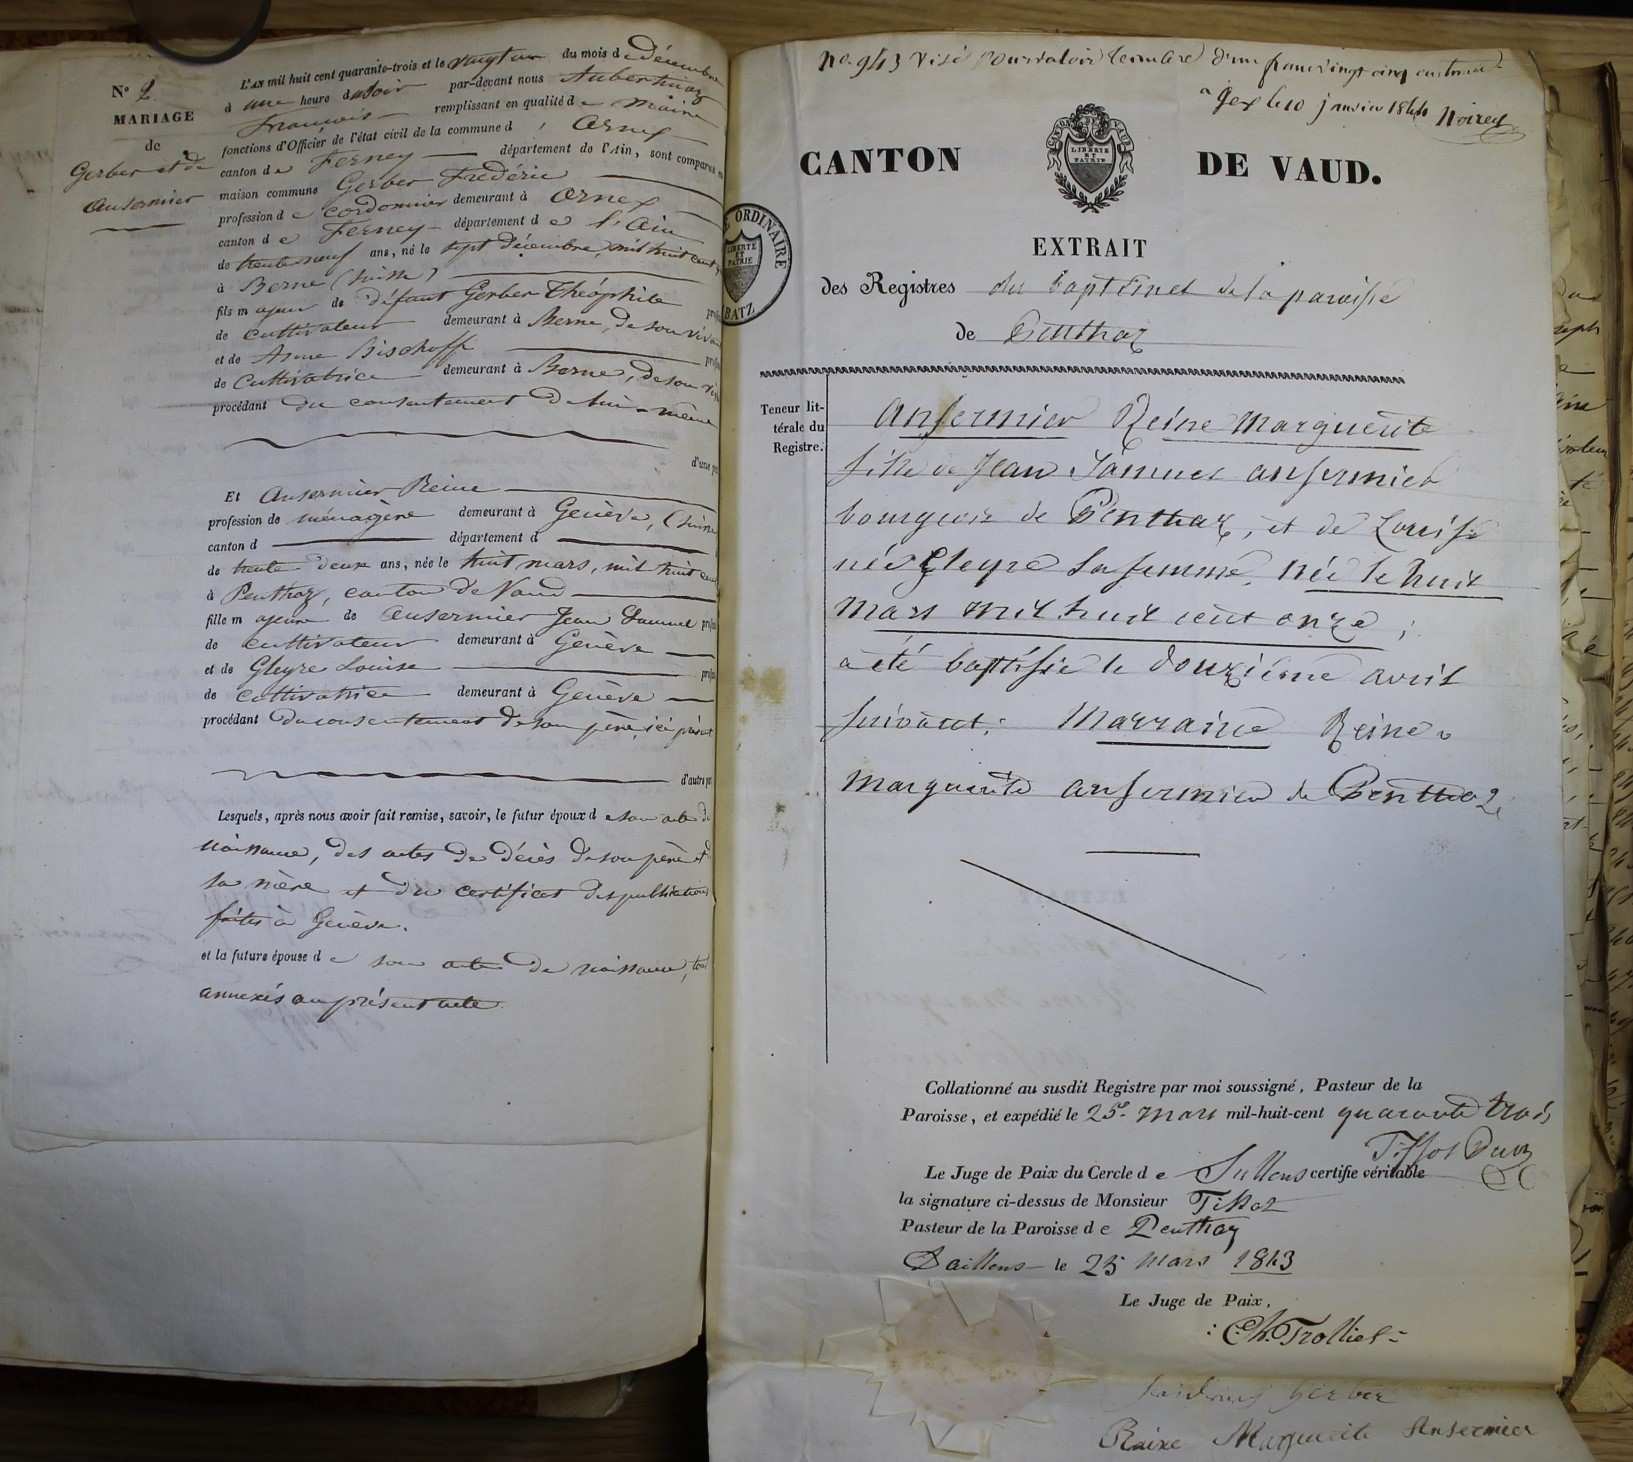 N° 2
MARIAGE
de
Gerber et de
Ansermier
L'AN mil huit cent quarante-trois et le vingt un du mois de décembre
à une heure du soir par-devant nous Aubert
François remplissant en qualité de Maire
fonctions d'Officier de l'état civil de la commune d'Ornex
canton de Ferney département de l'Ain, sont comparus en
maison commune Gerber Frédéric
profession de cordonnier demeurant à Ornex
canton de Ferney département de l'Ain
de trente neuf ans, né le sept Décembre, mil huit cent
à Berne (Suisse)
fils majeur de défunt Gerber Théophile
de cultivateur demeurant à Berne, de son viva
et de Anne Bischoff
de Cultivatrice demeurant à Berne, de son
procédant du consentement de lui-même
d'une
Et Ansermier Reine
profession de ménagère demeurant à Genève, (Suisse
canton d département d
de trente deux ans, née le huit mars, mil huit cent
à Penthaz, canton de Vaud
fille majeure de Ansermier Jean Samuel
de cultivateur demeurant à Genève
et de Gleyre Louise
de cultivatrice demeurant à Genève
procédant du consentement de son père, ici présent
d'autre
Lesquels, après nous avoir fait remise, savoir, le futur époux de son acte de
naissance, des actes de décès de son père et
sa mère et du certificat des publications
faites à Genève.
et la future épouse de son acte de naissance,
annexés au présent acte.
No. 943 Visé pour valoir timbre d'un franc vingt cinq centimes
à Gex le 10 janvier 1844 Noirey
CANTON DE VAUD.
CANTON DE VAUD
LIBERTÉ
ET
PATRIE
ORDINAIRE
LIBERTÉ
ET
PATRIE
BATZ
EXTRAIT
des Registres des baptêmes de la paroisse
de Penthaz
Teneur lit-
térale du
Registre.
Ansermier Reine Marguerite
fille de Jean Samuel Ansermier
bourgeois de Penthaz, et de Louise
née Gleyre sa femme, née le huit
Mars mil huit cent onze ;
a été baptisée le douzième avril
suivant; Marraine Reine
Marguerite Ansermier de Penthaz
Collationné au susdit Registre par moi soussigné, Pasteur de la
Paroisse, et expédié le 25e. Mars mil-huit-cent quarante trois
Tissot
Le Juge de Paix du Cercle de Sullens certifie véritable
la signature ci-dessus de Monsieur Tissot
Pasteur de la Paroisse de Penthaz
Daillens le 25 Mars 1843
Le Juge de Paix,
Ch. Trolliet
Gerber
Reine Marguerite Ansermier